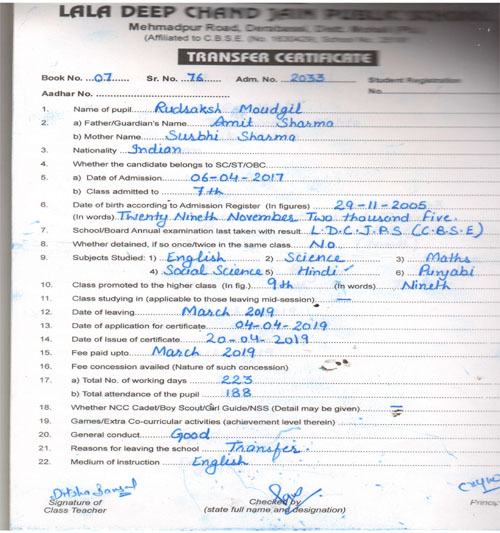 LALA DEEP CHAND JAIN PUBLIC
Mehmadpur Road,
(Affiliated to C.B.S.E. (No.
TRANSFER CERTIFICATE
Book No. 07 Sr. No. 76 Adm. No. 2033 Student Registration
Aadhar No. No.
1. Name of pupil Rudraksh Moudgil
2. a) Father/Guardian's Name Amit Sharma
b) Mother Name Surbhi Sharma
3. Nationality Indian
4. Whether the candidate belongs to SC/ST/OBC
5. a) Date of Admission 06-04-2017
b) Class admitted to 7th
6. Date of birth according to Admission Register (In figures) 29-11-2005
(In words) Twenty Nineth November Two thousand Five.
7. School/Board Annual examination last taken with result L.D.C.J.P.S (C.B.S.E)
8. Whether detained, if so once/twice in the same class. No
9. Subjects Studied: 1) English 2) Science 3) Maths
4) Social Science 5) Hindi 6) Punjabi
10. Class promoted to the higher class (In fig.) 9th (In words) Nineth
11. Class studying in (applicable to those leaving mid-session) —
12. Date of leaving March 2019
13. Date of application for certificate 04-04-2019
14. Date of Issue of certificate 20-04-2019
15. Fee paid upto March 2019
16. Fee concession availed (Nature of such concession)
17. a) Total No. of working days 223
b) Total attendance of the pupil 188
18. Whether NCC Cadet/Boy Scout/Girl Guide/NSS (Detail may be given)
19. Games/Extra Co-curricular activities (achievement level therein)
20. General conduct Good
21. Reasons for leaving the school Transfer.
22. Medium of instruction English
Signature of Class Teacher
Checked by (state full name and designation)